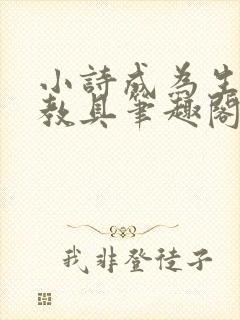 小詩成為生
教具筆趣閣
我非登徒子